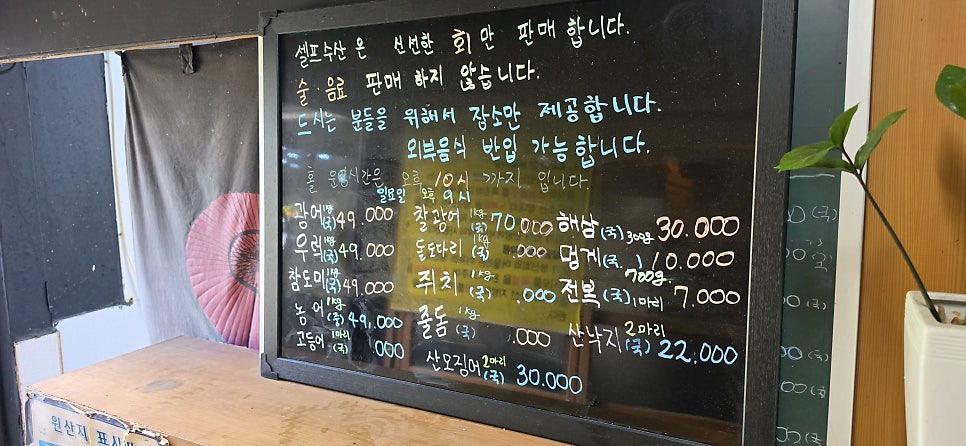 셀프수산 은 신선한 회 만 판매 합니다.
술·음료 판매 하지 않습니다.
드시는 분들을 위해서 장소만 제공합니다.
외부음식 반입 가능합니다.
홀 운영시간은 오후 10시 까지 입니다.
일요일 오후 9시
광어 1kg (국) 49.000
우럭 1kg (국) 49.000
참도미 1kg (국) 49.000
농어 1kg (중) 49,000
고등어 1마리 (국) 000
찰광어 1kg (국) 70.000
돌도다리 1kg (국) .000
쥐치 1kg (국) .000
줄돔 1kg (국) .000
산오징어 2마리 (국) 30.000
해삼 (국) 300g 30.000
멍게 (국..) 700g. 10.000
전복 (국) 1마리 7.000
산낙지 2마리 (국) 22.000
원산지 표시